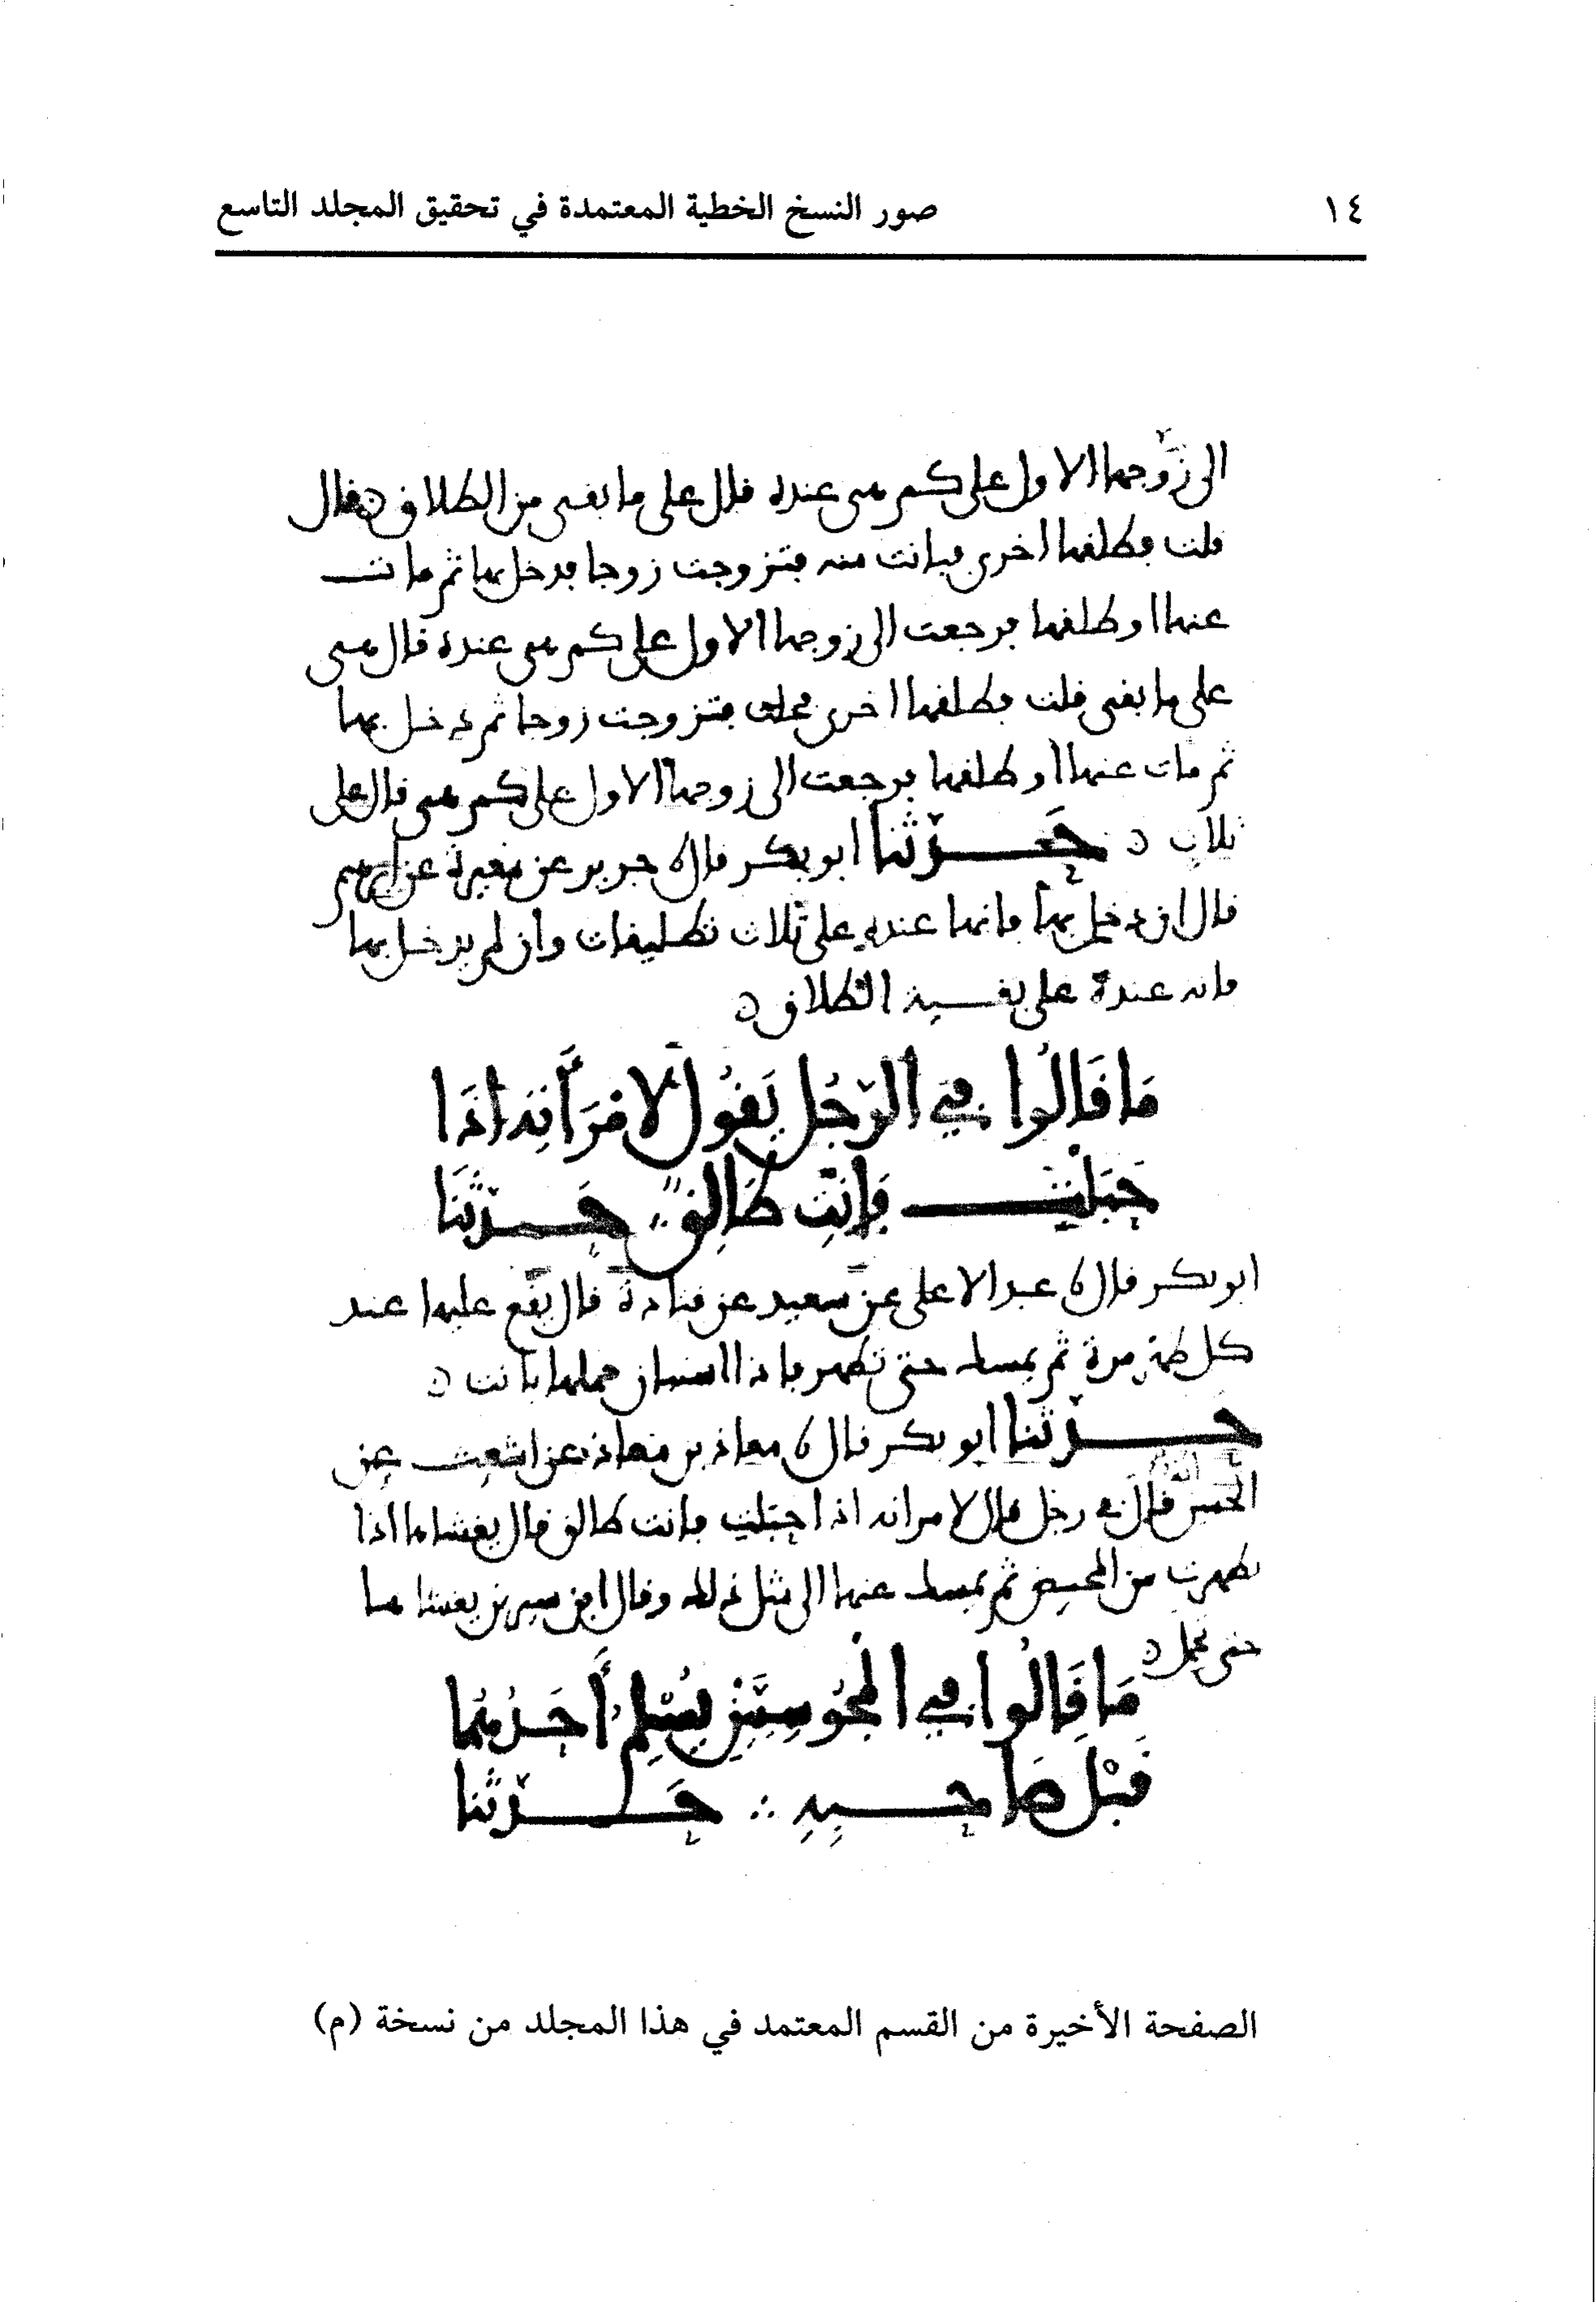 ١٤ صور النسخ الخطية المعتمدة في تحقيق المجلد التاسع
الى زوجها الاول على كم هي عنده قال على ما بقي من الطلاق فقال
قلت فطلقها اخرى فبانت منه فتزوجت زوجا فدخل بها ثم مات
عنها او طلقها فرجعت الى زوجها الاول على كم هي عنده قال هي
على ما بقي قلت فطلقها اخرى فتزوجت زوجا ثم دخل بها
ثم مات عنها او طلقها فرجعت الى زوجها الاول على كم هي قال على
ثلاث حَدّثنا ابو بكر قال نا جرير عن مغيرة عن ابرهيم
قال ان دخل بها فانها عنده على ثلاث تطليقات وان لم يدخل بها
فانه عنده على بقية الطلاق
مَا قَالُوا فِي الرّجُل يَقُول لامْرَأَتِه اذَا
حَبَلْتِ فَانتِ طَالِق حَدّثَنَا
ابو بكر قال نا عبد الاعلى عن سعيد عن قتادة قال يقع عليها عند
كل طهر مرة ثم يمسك حتى تطهر فاذا استبان حملها بانت
حدّثنا ابو بكر قال نا معاذ بن معاذ عن اشعث عن
الحسن قال في رجل قال لامراته اذا حبلت فانت طالق قال يغشاها اذا
تطهرت من المحيض ثم يمسك عنها الى مثل ذلك وقال ابن سيرين يغشاها
حتى تحمل
مَا قَالُوا فِي المجُوسِيَّيْنِ يُسْلِم أَحَدُهُمَا
قَبْل صَاحِبِهِ حَدّثنا
الصفحة الأخيرة من القسم المعتمد في هذا المجلد من نسخة (م)